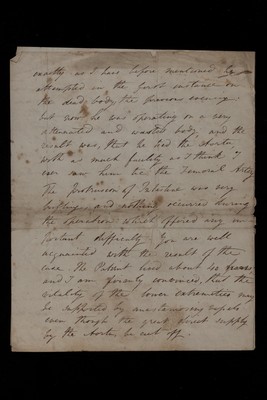 exactly as I have before mentioned by
attempted in the first instance on
the dead body the previous evening
but now he was operating on a very
attenuated and wasted body, and the
result was, that he tied the Aorta
with as much facility as I think I
ever saw him tie the Femoral Artery
The protrusion of Intestine was very
and nothing occurred during
the operation which offered any im-
portant difficulty. You are well
acquainted with the result of the
case. The Patient lived about 40 hours
and I am firmly convinced, that the
vitality of the lower extremities may
be supported by anastomosing vessels
even though the great direct supply
by the Aorta, be cut off.